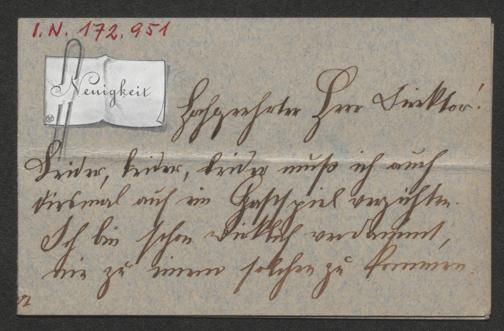 I.N. 172.951
Neuigkeit
Hochgeehrter Herr Direktor!
Leider, leider, leider muß ich auch
diesmal auf ein Gastspiel verzichten.
Ich bin schon wirklich verdammt,
nie zu einem solchen zu kommen.